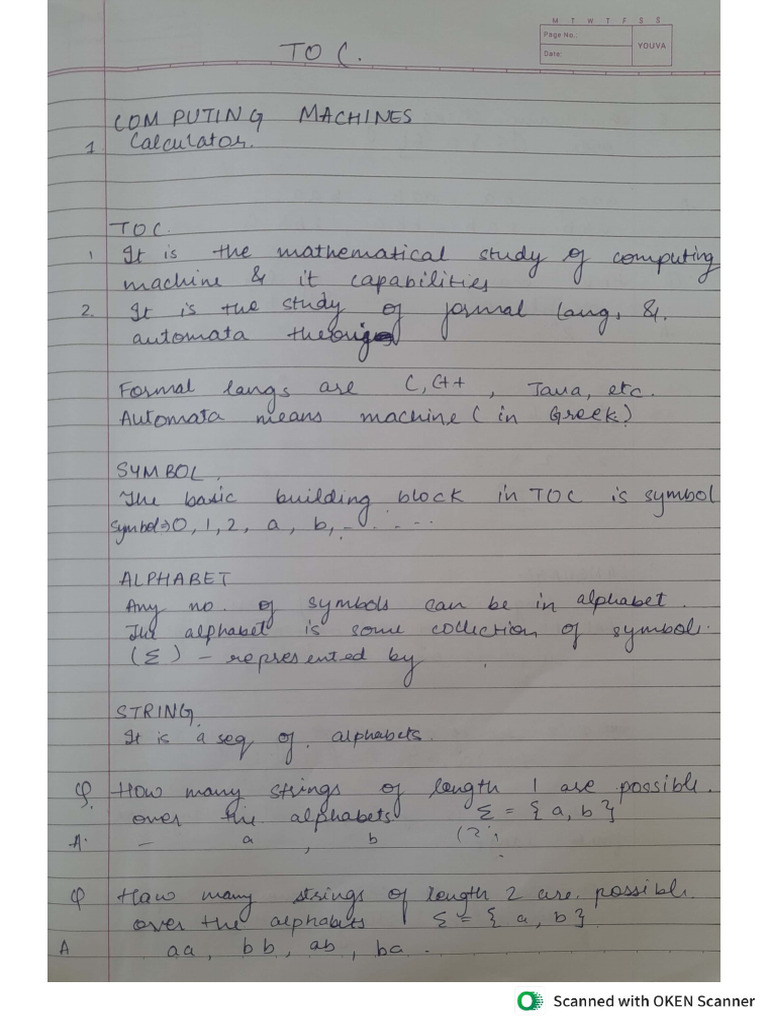 M T W T F S S
Page No.:
Date:
YOUVA
TOC.
COMPUTING MACHINES
1. Calculator.
TOC.
1 It is the mathematical study of computing
machine & it capabilities
2. It is the study of formal lang, &
automata
Formal langs are C, C++, Java, etc.
Automata means machine (in Greek)
SYMBOL.
The basic building block in TOC is symbol
symbol⇒0, 1, 2, a, b, - . . . . .
ALPHABET
Any no. of symbols can be in alphabet.
The alphabet is some collection of symbol.
(Σ) - represented by
STRING.
It is a seq of alphabets.
Q. How many strings of length 1 are possible.
over the alphabets Σ = {a, b}
A. - a, b
Q How many strings of length 2 are possible.
over the alphabets Σ = {a, b}
A aa, bb, ab, ba.
Scanned with OKEN Scanner